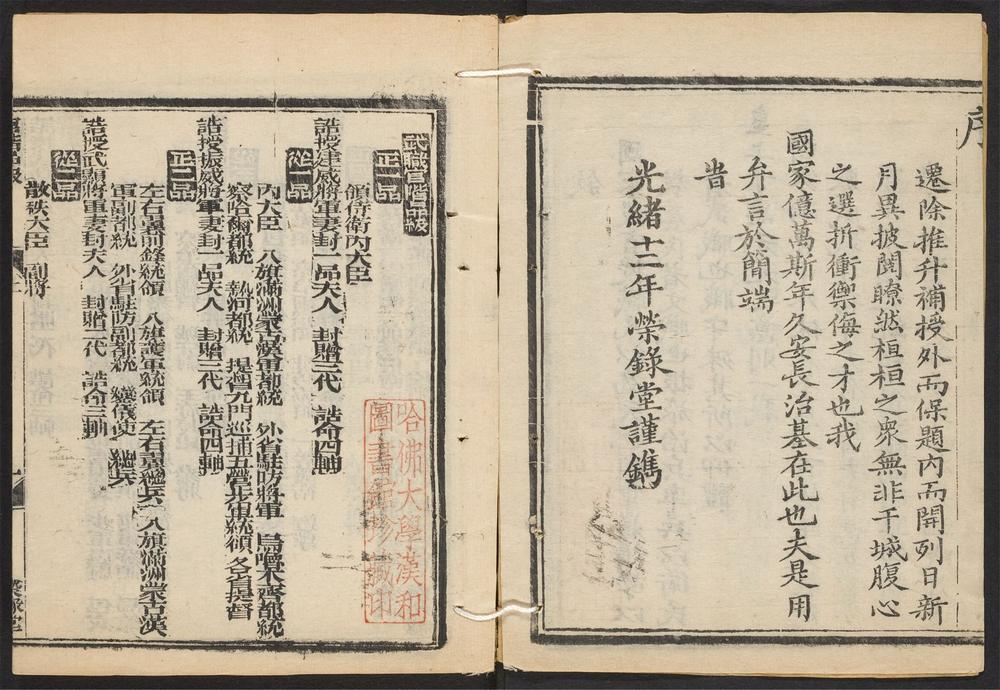 序
遷除推升補授外而保題內而開列日新
月異披閱瞭然桓桓之衆無非干城腹心
之選折衝禦侮之才也我
國家億萬斯年久安長治基在此也夫是用
弁言於簡端
旹
光緒十二年榮錄堂謹鐫
武職官階品級
正一品
領侍衛內大臣
誥授建威將軍妻封一品夫人 封贈三代 誥命四軸
從一品
內大臣 八旗滿洲蒙古漢軍都統 外省駐防將軍 烏嚕木齊都統
察哈爾都統 熱河都統 提督九門巡捕五營步軍統領 各省提督
誥授振威將軍妻封一品夫人 封贈三代 誥命四軸
正二品
左右翼前鋒統領 八旗護軍統領 左右翼總兵 八旗滿洲蒙古漢
軍副都統 外省駐防副都統 鑾儀使 總兵
誥授武顯將軍妻封夫人 封贈二代 誥命三軸
從二品
散秩大臣 副將
榮錄堂
哈佛大學漢和
圖書館珍藏印